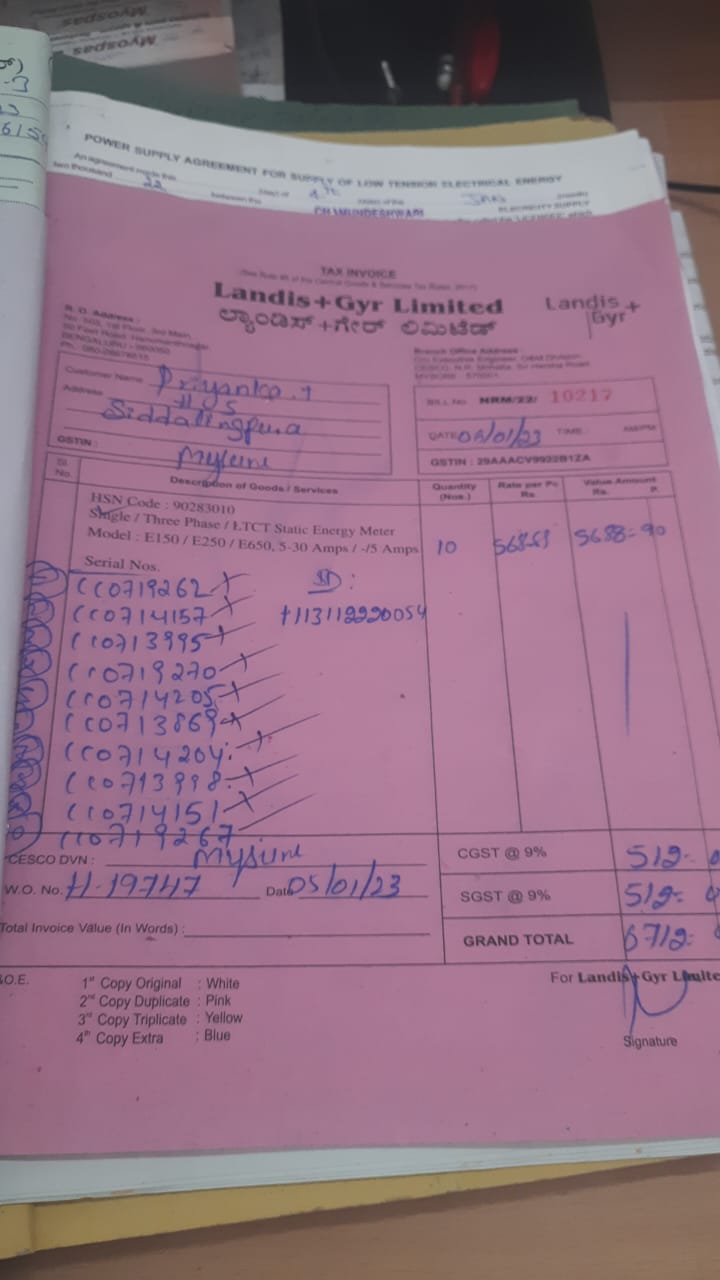 Myospas
Myospas
POWER SUPPLY AGREEMENT FOR SUPPLY OF LOW TENSION ELECTRICAL ENERGY
An agreement made this
two thousand 22 between the
CHAMUNDESHWARI ELECTRICITY SUPPLY
TAX INVOICE
Landis+Gyr Limited
ಲ್ಯಾಂಡಿಸ್ +ಗೇರ್ ಲಿಮಿಟೆಡ್
Landis+
Gyr
R. O. Address :
Branch Office Address :
Customer Name Priyanka.
Address
Siddalingpura
GSTIN :
Mysure
BILL No NRM/22/ 10217
DATE 05/01/23 TIME: AM/PM
GSTIN : 29AAACV9922B1ZA
Sl. No.
Description of Goods / Services
Quantity (Nos.)
Rate per Pc Rs.
Value Amount Rs. P.
HSN Code : 90283010
Single / Three Phase / LTCT Static Energy Meter
Model : E150 / E250 / E650, 5-30 Amps / -/5 Amps
10
5688-90
Serial Nos.
CC0719262
CC0714157
CC0713995
CC0719270
CC0714205
CC0713869
CC0714204
CC0713998
CC0714151
CC0719267
ID:
CESCO DVN : Mysure
W.O. No. H-19747 Date 05/01/23
Total Invoice Value (In Words) :
CGST @ 9% 512-
SGST @ 9% 512-
GRAND TOTAL 6712-
.O.E.
1st Copy Original : White
2nd Copy Duplicate : Pink
3rd Copy Triplicate : Yellow
4th Copy Extra : Blue
For Landis+Gyr Limite
Signature